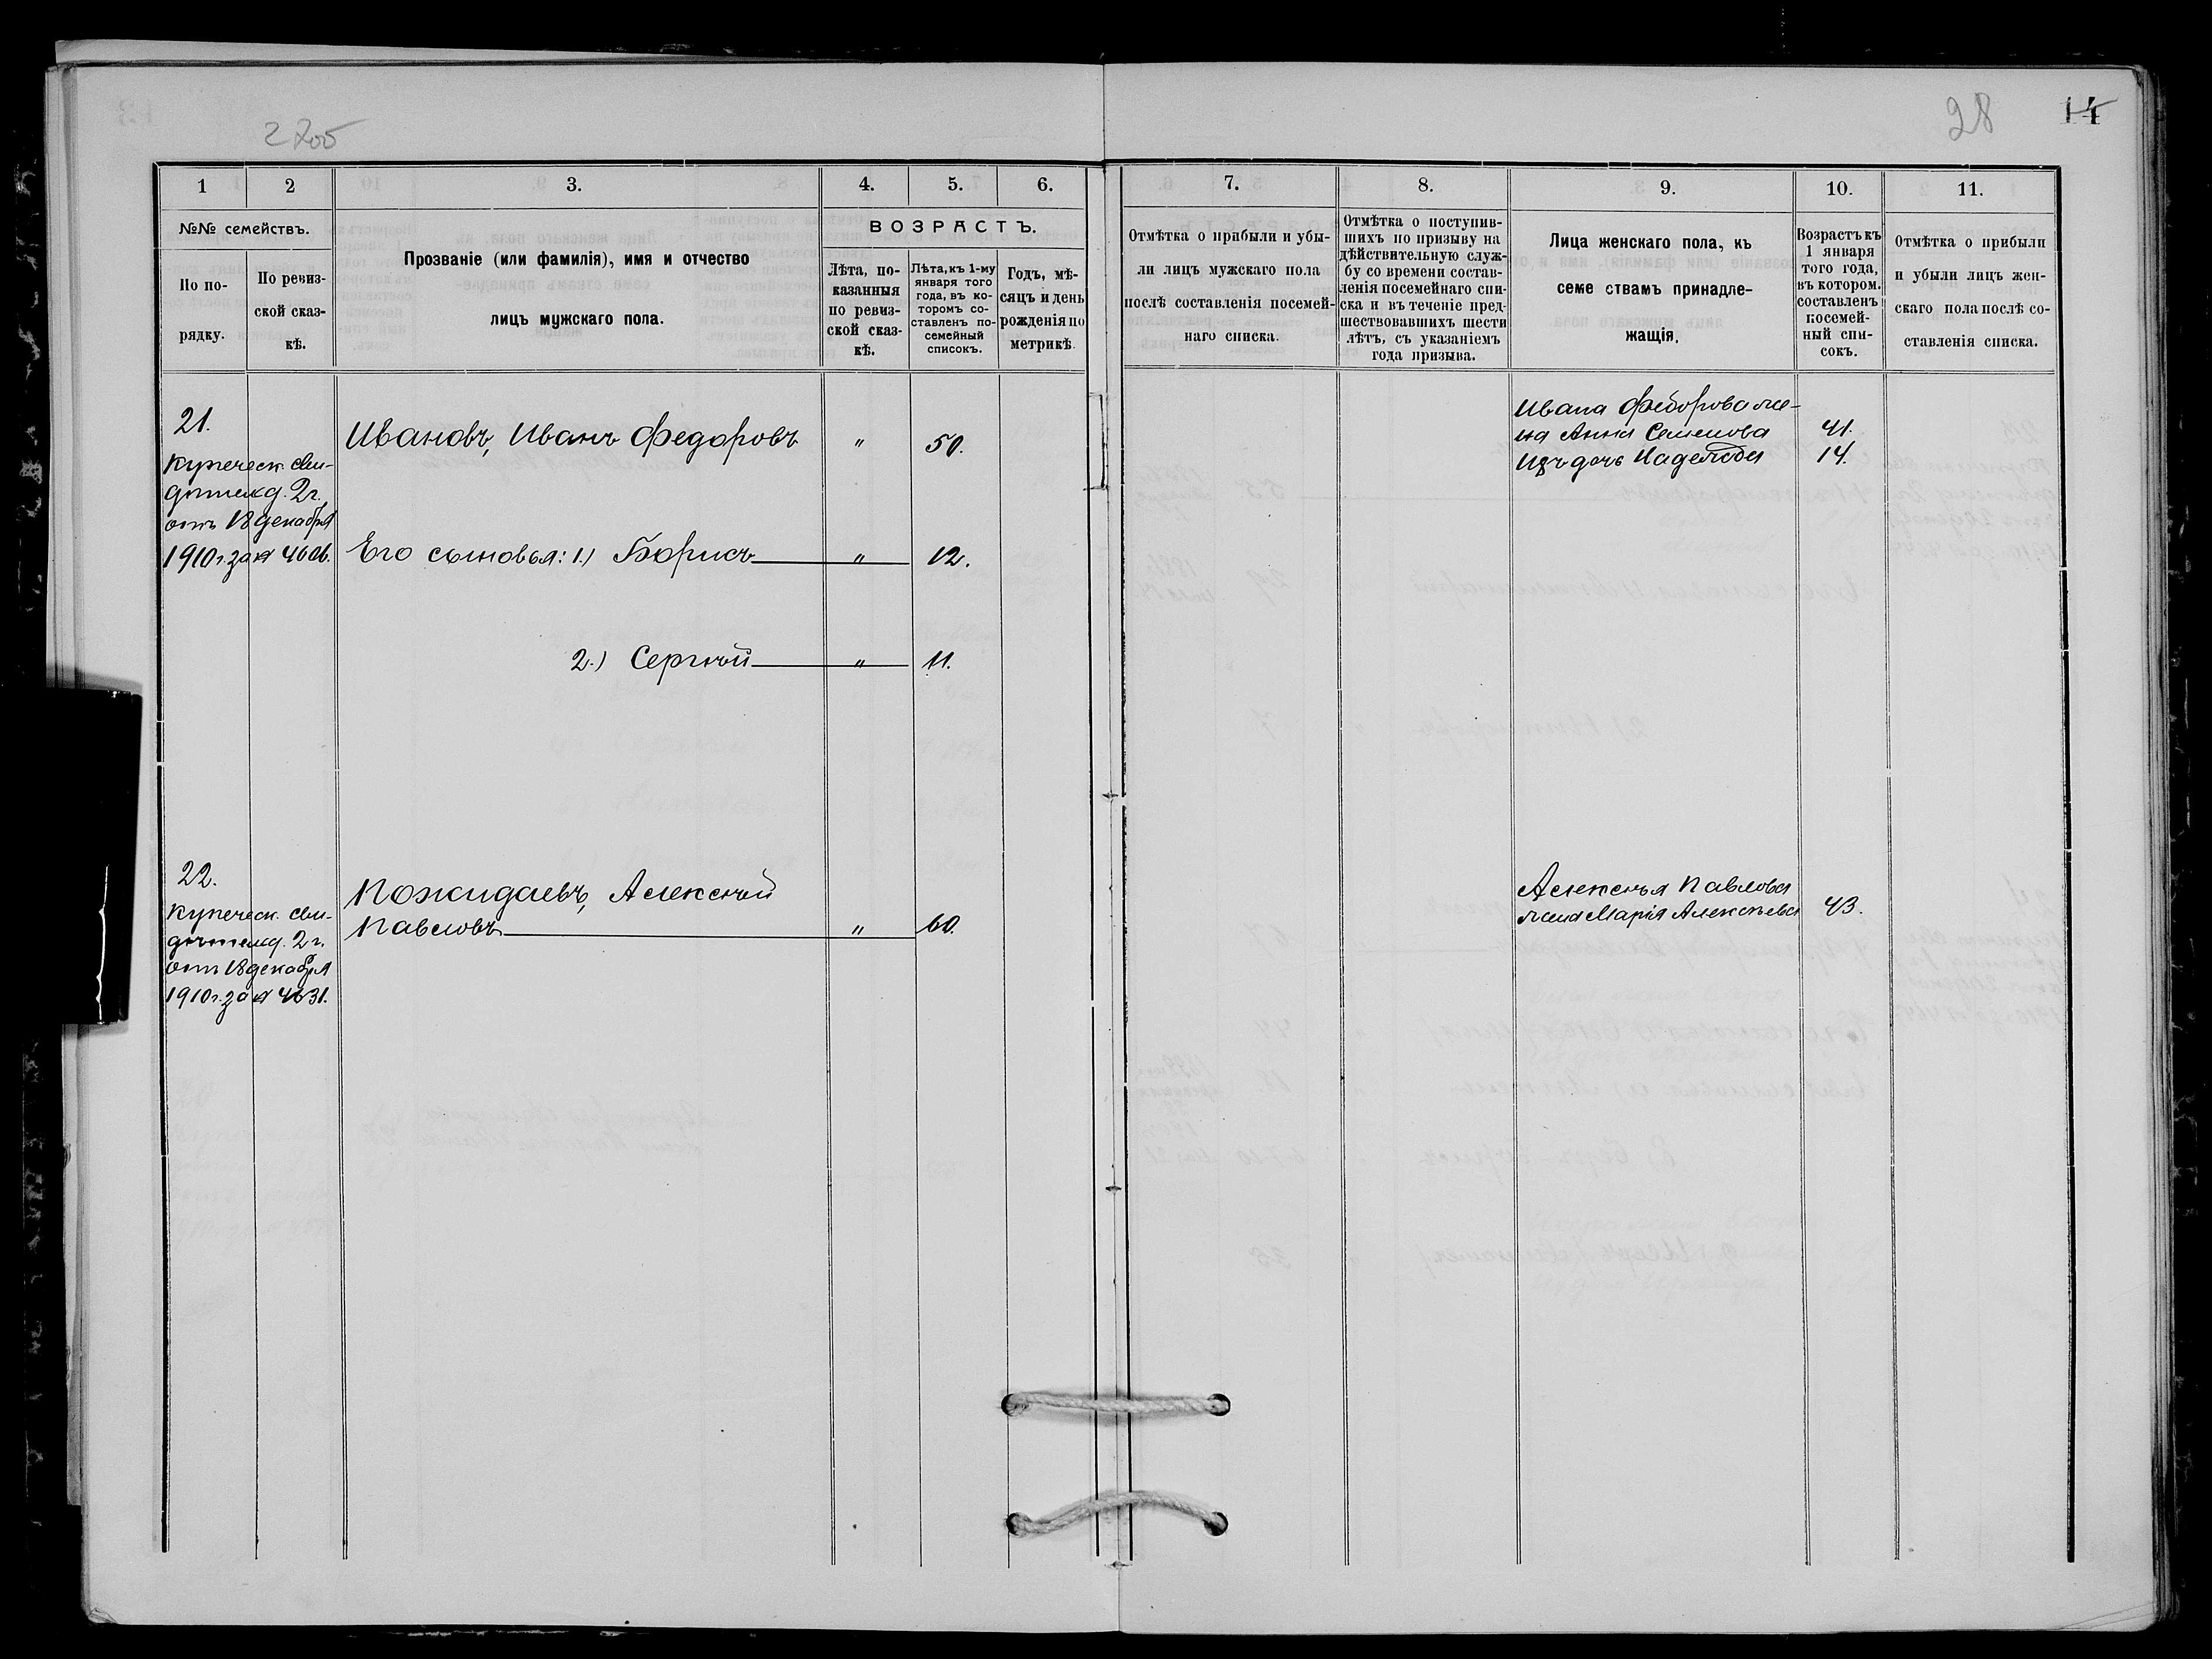 28 14
1 2 3. 4. 5. 6. 7. 8. 9. 10. 11.
№№ семействъ.
По по-
рядку.
По ревиз-
ской сказ-
кѣ.
Прозваніе (или фамилія), имя и отчество
лицъ мужскаго пола.
ВОЗРАСТЪ.
Лѣта, по-
казанныя
по ревиз-
ской сказ-
кѣ.
Лѣта, къ 1-му
января того
года, въ ко-
торомъ со-
ставленъ по-
семейный
списокъ.
Годъ, мѣ-
сяцъ и день
рожденія по
метрикѣ.
Отмѣтка о прибыли и убы-
ли лицъ мужскаго пола
послѣ составленія посемей-
наго списка.
Отмѣтка о поступив-
шихъ по призыву на
дѣйствительную служ-
бу со времени состав-
ленія посемейнаго спи-
ска и въ теченіе пред-
шествовавшихъ шести
лѣтъ, съ указаніемъ
года призыва.
Лица женскаго пола, къ
семе ствамъ принадле-
жащія.
Возрастъ къ
1 января
того года,
въ котором.
составленъ
посемей-
ный спи-
сокъ.
Отмѣтка о прибыли
и убыли лицъ жен-
скаго пола послѣ со-
ставленія списка.
21.
Купеческ. сви-
дѣтельд. 2 г.
отъ 18 декабря
1910 г. за № 4606.
Ивановъ, Иванъ Федоровъ " 50.
Его сыновья: 1.) Борисъ " 12.
2.) Сергѣй " 11.
Ивана Федорова же-
на Анна Семенова 41.
Ихъ дочь Надежда 14.
22.
Купеческ. сви-
дѣтельд. 2 г.
отъ 18 декабря
1910 г. за № 4631.
Пожидаевъ, Алексѣй
Павловъ " 60.
Алексѣя Павлова
жена Марія Алексѣева 43.